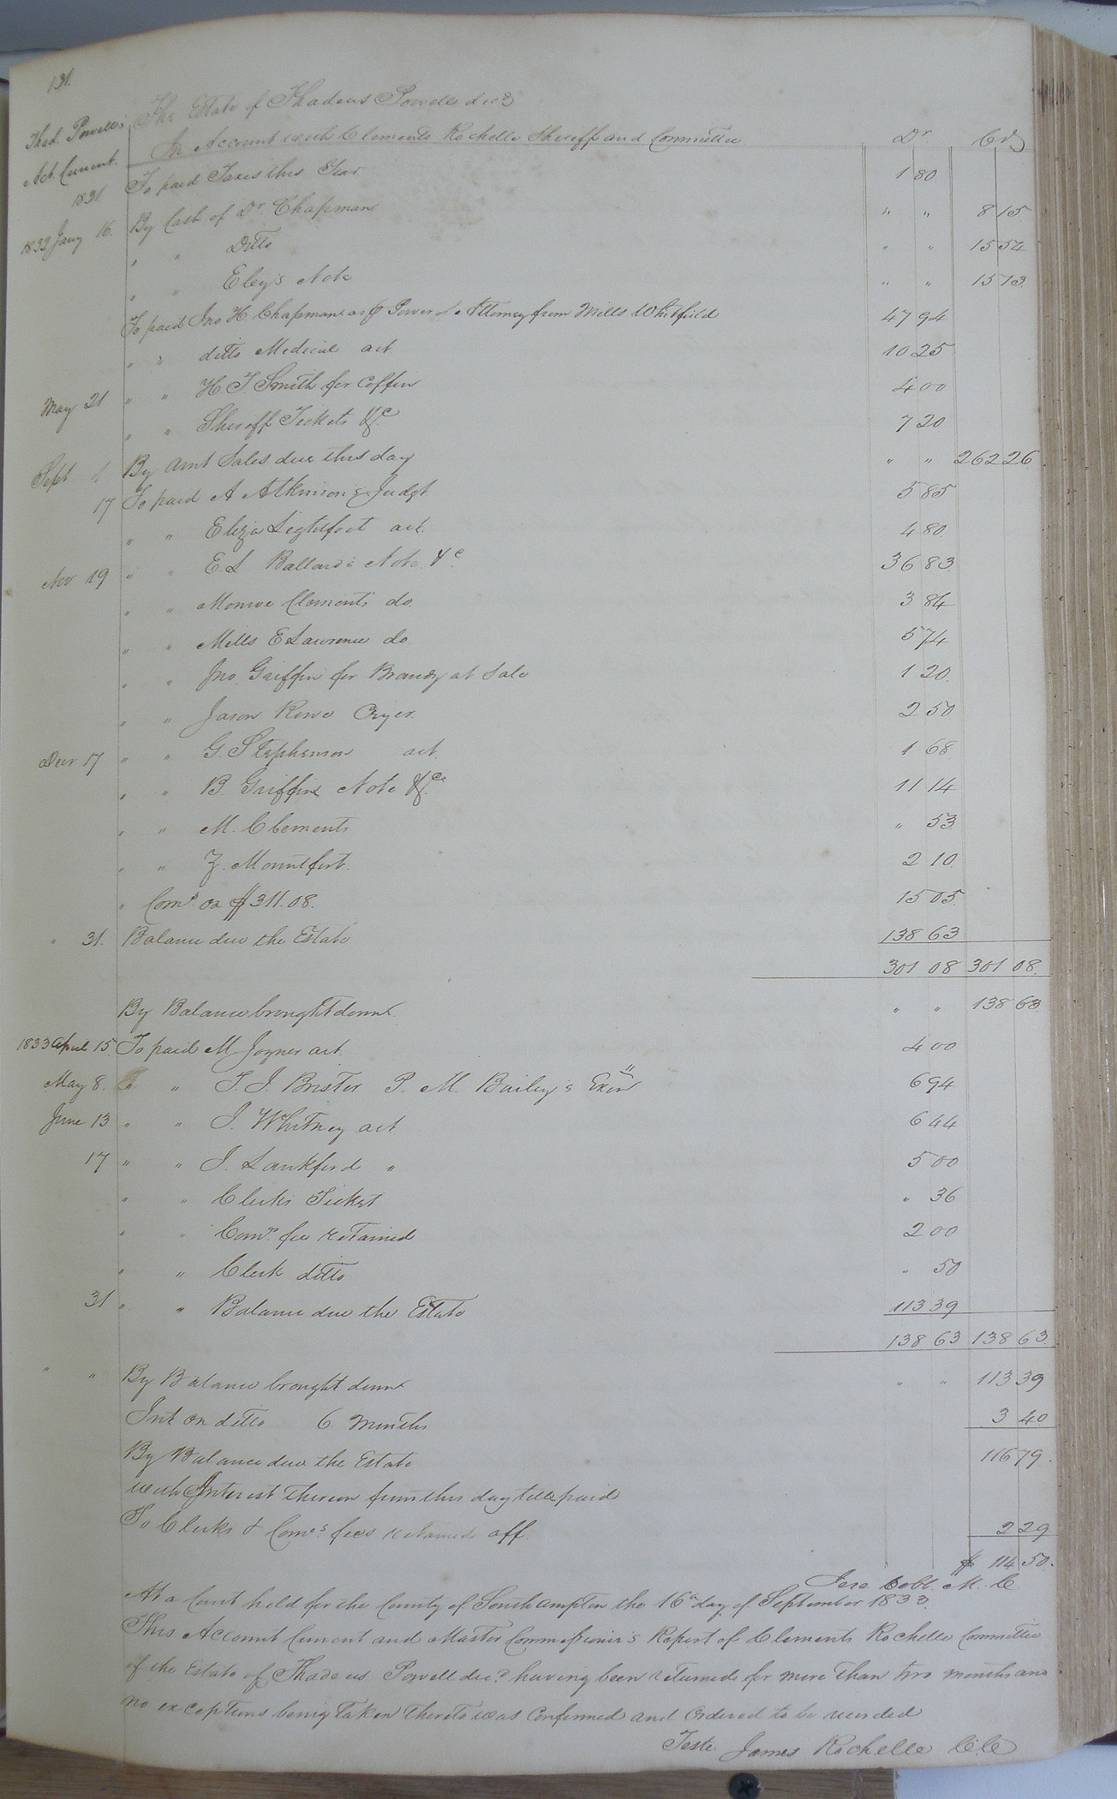 131.
The Estate of Thadeus Powell decd
Thad. Powell's In Account with Clements Rochelle Sheriff and Committee Dr Crd
Act Current.
1831 To paid Taxes this Year 1 80
1832 Jany 16. By Cash of Dr. Chapman " " 8 15
" " Ditto " " 15 54
" " Eley's Note " " 15 13
To paid Jno H. Chapman as p Power of Attorney from Mills Whitfield 47 94
" " ditto Medical act 10 25
May 21 " " H. T. Smith for Coffin 4 00
" " Sheriff Tickets &c 7 20
Sept 1 By Amt Sales due this day " " 262 26
17 To paid A Atkinson's Judgt 5 85
" " Eliza Lightfoot act. 4 80
Nov 19 " " E. S Ballard's Note &c 36 83
" " Monroe Clements do. 3 84
" " Mills E Lawrence do 5 74
" " Jno. Griffin for Brandy at Sale 1 20.
" " Jason Rowe Cryer. 2 50
Decr 17 " " G. Stephenson act. 1 68
" " B. Griffins Note &c 11 14
" " M. Clements " 53
" " Z. Mountfort. 2 10
" Coms. on $311.08. 15 05
" 31. Balance due the Estate 138 63
301 08 301 08.
By Balance brought down " " 138 63
1833 April 15. To paid M. Joyner act. 4 00
May 8. " " T. J. Brister P. M. Bailey's Exor 6 94
June 13 " " J. Whitney act 6 44
17 " " J. Lankford " 5 00
" " Clerks Ticket " 36
" " Comr. fee retained 2 00
" " Clerk ditto " 50
31 " " Balance due the Estate 113 39
138 63 138 63
" " By Balance brought down " " 113 39
Int on ditto 6 Months 3 40
By Balance due the Estate 116 79.
with Interest thereon from this day till paid
To Clerks & Comrs fees retained off. 2 29
$ 114 50.
Jere Cobb. M. C
At a Court held for the County of Southampton the 16th day of September 1833.
This Account Current and Master Commissioner's Report of Clements Rochelle Committee
of the Estate of Thadeus Powell decd. having been returned for more than two months and
no exceptions being taken thereto was Confirmed and Ordered to be recorded
Teste James Rochelle C.C